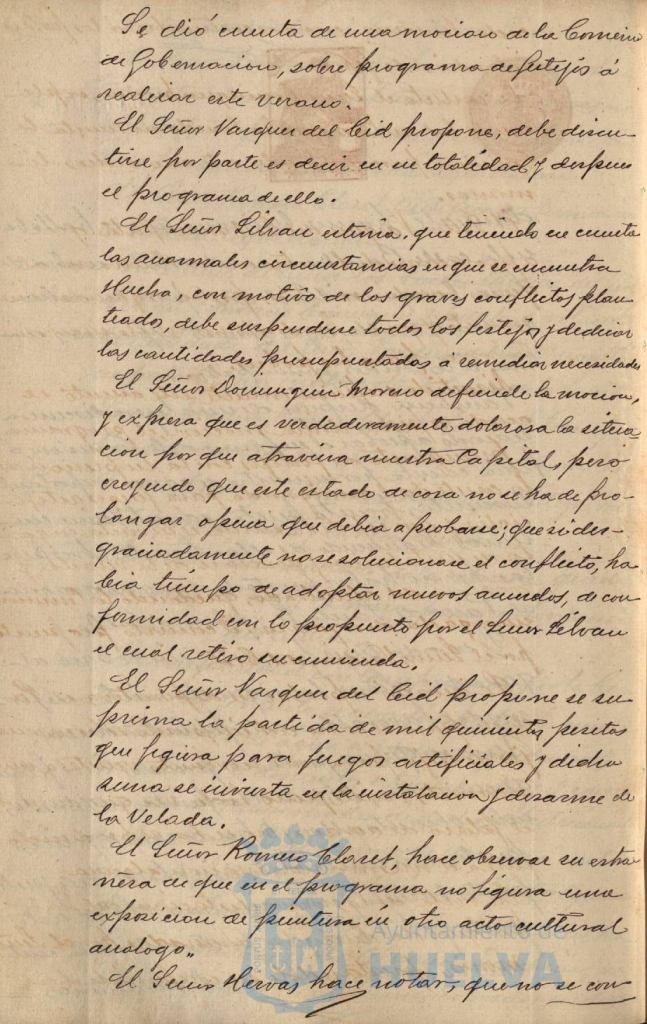 Se dió cuenta de una mocion de la Comision
de Gobernacion, sobre programa de festejos á
realizar este verano.
El Señor Vazquez del Cid propone, debe discu-
tirse por parte es decir en su totalidad y despues
el programa de ello.
El Señor Silvan estima, que teniendo en cuenta
las anormales circunstancias en que se encuentra
Huelva, con motivo de los graves conflictos plan-
teado, debe suspenderse todos los festejos y dedicar
las cantidades presupuestadas á remediar necesidades
El Señor Dominguez Moreno defiende la mocion,
y expresa que es verdaderamente dolorosa la situa-
cion por que atraviesa nuestra Capital, pero
creyendo que este estado de cosa no se ha de pro-
longar opina que debia aprobarse; que si des-
graciadamente no se solucionase el conflicto, ha
bia tiempo de adoptar nuevos acuerdos, de con
formidad con lo propuesto por el Señor Silvan
el cual retiró su enmienda.
El Señor Vazquez del Cid propone se su
prima la partida de mil quinientas pesetas
que figura para fuegos artificiales y dicha
suma se invierta en la instalacion y desarme de
la Velada.
El Señor Romero Claret, hace observar su extra-
ñesa de que en el programa no figura una
exposicion de pintura ú otro acto cultural
analogo„
El Señor Hervas hace notar, que no se con
Ayuntamiento de
HUELVA